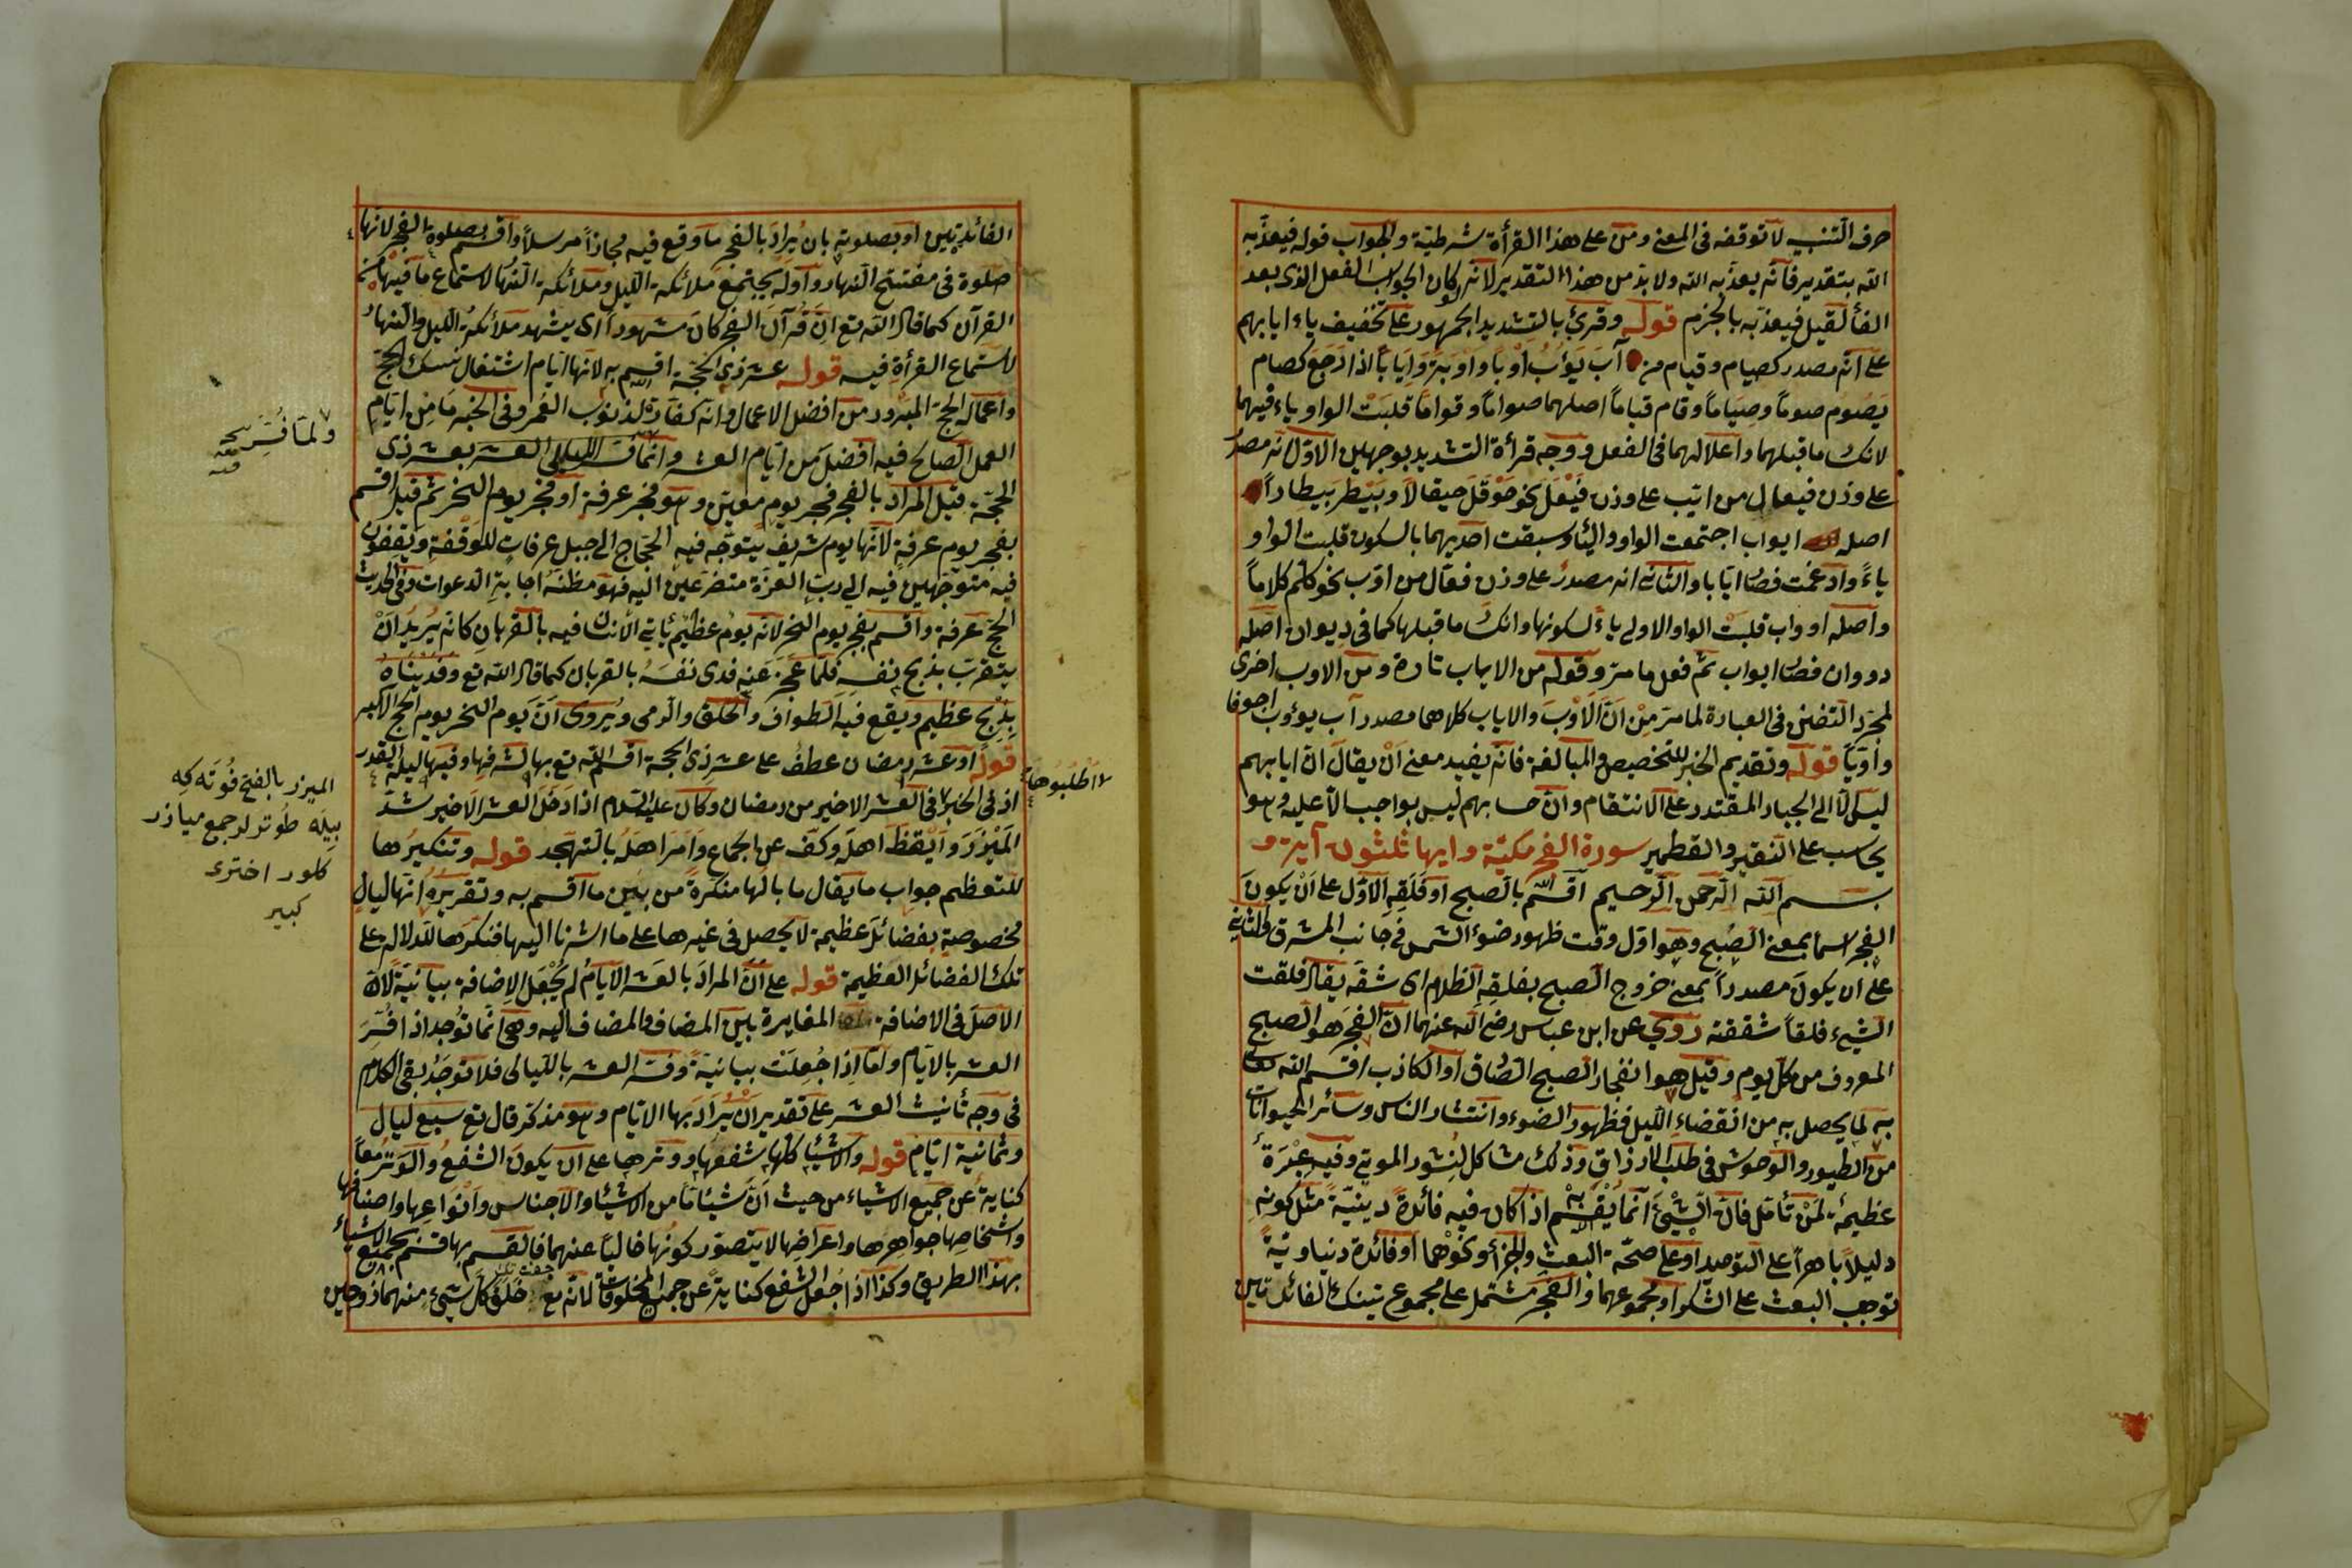 حرف التنبيه لا توقفه فى المعنى ومن على هذا القرأة شرطية والجواب قوله فيعذبه
الله بتقدير فانه يعذبه الله ولا بد من هذا التقدير لانه لو كان الجواب الفعل الذى بعد
الفأ لقيل فيعذبه بالجزم قوله وقرئ بالتشديد الجمهور على تخفيف ياء ايابهم
على انه مصدر كصيام وقيام من آب يؤب اوبا واوبة وايابا اذا رجع كصام
يصوم صوما وصياما وقام قياما اصلهما صواما وقواما قلبت الواو ياء فيهما
لانكسار ما قبلهما واعلالهما فى الفعل ووجه قرأة التشديد بوجهين الاول انه مصدر
على وزن فيعال من ايب على وزن فيعل نحو حوقل حيقالا وبيطر بيطارا
اصله ايواب اجتمعت الواو والياء وسبقت احديهما بالسكون قلبت الواو
ياء وادغمت فصار ايابا والثانى انه مصدر على وزن فعال من اوب نحو كلم كلاما
واصله اوواب قلبت الواو الاولى ياء لسكونها وانكسار ما قبلها كما فى ديوان اصله
دووان فصار ايواب ثم فعل ما مر وقوله من الاياب تارة ومن الاوب اخرى
لمجرد التفنن فى العبارة لما مر من ان الاوب والاياب كلاهما مصدر آب يؤوب اجوفا
واويا قوله وتقديم الخبر للتخصيص والمبالغة فانه يفيد معنى ان يقال ان ايابهم
ليس الا الى الجبار المقتدر على الانتقام وان حسابهم ليس بواجب الا عليه وهو
يحاسب على النقير والقطمير سورة الفجر مكية وايها ثلثون آية
بسم الله الرحمن الرحيم اقسم الله بالصبح او فلقه الاول على ان يكون
الفجر اسما بمعنى الصبح وهو اول وقت ظهور ضوء الشمس فى جانب المشرق والثانى
على ان يكون مصدرا بمعنى خروج الصبح بفلقه الظلام اى شقه يقال فلقت
الشيء فلقا شققته روى عن ابن عباس رضى الله عنهما ان الفجر هو الصبح
المعروف من كل يوم وقيل هو انفجار الصبح الصادق او الكاذب اقسم الله تعالى
به لما يحصل به من انقضاء الليل فظهور الضوء وانتشار الناس وسائر الحيوانات
من الطيور والوحوش فى طلب الارزاق وذلك مشاكل لنشور الموتى وفيه عبرة
عظيمة لمن تأمل فان الشيء انما يقسم به اذا كان فيه فائدة دينية مثل كونه
دليلا باهرا على التوحيد او على صحة البعث والجزأ ونحوهما او فائدة دنياوية
توجب البعث على الشكر او مجموعهما والفجر مشتمل على مجموع تينك الفائدتين
الفائدتين او بصلوته بان يراد بالفجر ما وقع فيه مجازا مرسلا واقسم بصلوة الفجر لانها
صلوة فى مفتتح النهار واوله يجتمع ملائكة الليل وملائكة النهار لاستماع ما فيها من
القرآن كما قال الله تع ان قرآن الفجر كان مشهودا اى يشهد ملائكة الليل والنهار
لاستماع القرأة فيه قوله عشر ذى الحجة اقسم الله به لانها ايام اشتغال نسك الحج
واعماله الحج المبرور من افضل الاعمال وانه كفارة لذنوب العمر وفى الخبر ما من ايام
العمل الصالح فيه افضل من ايام العشر وانما فسر الليالى العشر بعشر ذى
الحجة قيل المراد بالفجر فجر يوم معين وهو فجر عرفة او فجر يوم النحر ثم قيل اقسم
بفجر يوم عرفة لانها يوم شريف يتوجه فيه الحجاج الى جبل عرفات للوقفة ويقفون
فيه متوجهين فيه الى رب العزة متضرعين اليه فهو مظنة اجابة الدعوات وفى الحديث
الحج عرفة واقسم بفجر يوم النحر لانه يوم عظيم يأتى الانسان فيه بالقربان كانه يريد ان
يتقرب بذبح نفسه فلما عجز عنه فدى نفسه بالقربان كما قال الله تع وفديناه
بذبح عظيم ويقع فيه الطواف والحلق والرمى ويروى ان يوم النحر يوم الحج الاكبر
قوله او عشر رمضان عطف على عشر ذى الحجة اقسم الله تع بها لشرفها وفيها ليلة القدر
اذ فى الخبر فى العشر الاخير من رمضان وكان عليه السلام اذا دخل العشر الاخير شد
الميزر وايقظ اهله وكف عن الجماع وامر اهله بالتهجد قوله وتنكيرها
للتعظيم جواب ما يقال ما بالها منكرة من بين ما اقسم به وتقريره انها ليال
مخصوصة بفضائل عظيمة لا يحصل فى غيرها على ما اشرنا اليها فنكرها للدلالة على
تلك الفضائل العظيمة قوله على ان المراد بالعشر الايام لم يجعل الاضافة بيانية لان
الاصل فى الاضافة المغايرة بين المضاف والمضاف اليه وهى انما توجد اذا فسر
العشر بالايام واما اذا جعلت بيانية وفسر العشر بالليالى فلا توجد بقى الكلام
فى وجه تأنيث العشر على تقدير ان يراد بها الايام وهو مذكر قال تع سبع ليال
وثمانية ايام قوله والاشياء كلها شفعها ووترها على ان يكون الشفع والوتر معا
كناية عن جميع الاشياء من حيث ان شيئا من الاشياء والاجناس وانواعها واصنافها
واشخاصها جواهرها واعراضها لا يتصور كونها خاليا عنهما فالقسم بها قسم بجميع الاشياء
بهذا الطريق وكذا اذا جعل الشفع كناية عن جميع المخلوقات لانه تع خلق كل شيء منهما زوجين
ولما فسر
اطلبوها
الميزر بالفتح فوته كه
بيله طوتر لر جمع ميازر
كلور اخترى
كبير